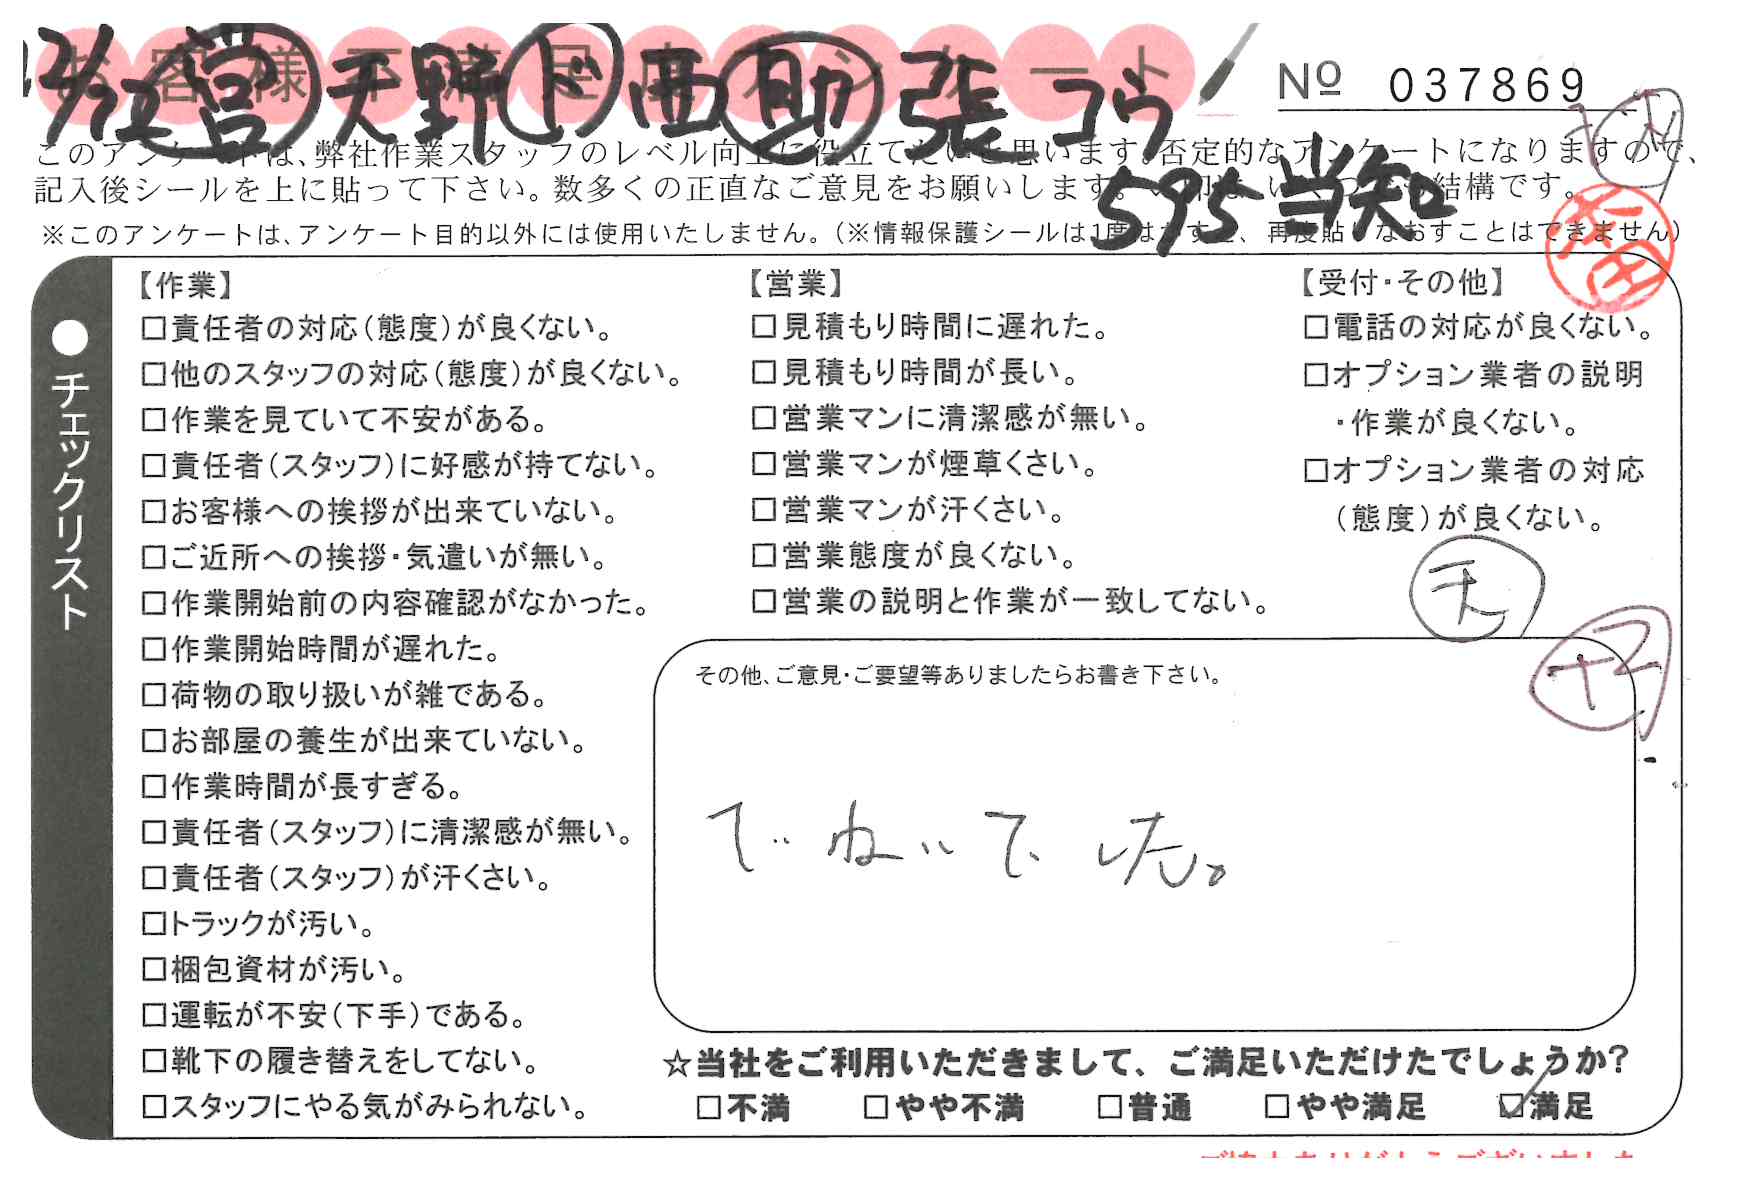 お客様不満足度アンケート
営 天野 ド 西 助 張 コウ
595 当知
№ 037869
このアンケートは、弊社作業スタッフのレベル向上に役立てたいと思います。否定的なアンケートになりますので、
記入後シールを上に貼って下さい。数多くの正直なご意見をお願いします。
※このアンケートは、アンケート目的以外には使用いたしません。(※情報保護シールは1度はがすと、再度貼りなおすことはできません)
●チェックリスト
【作業】
□責任者の対応(態度)が良くない。
□他のスタッフの対応(態度)が良くない。
□作業を見ていて不安がある。
□責任者(スタッフ)に好感が持てない。
□お客様への挨拶が出来ていない。
□ご近所への挨拶・気遣いが無い。
□作業開始前の内容確認がなかった。
□作業開始時間が遅れた。
□荷物の取り扱いが雑である。
□お部屋の養生が出来ていない。
□作業時間が長すぎる。
□責任者(スタッフ)に清潔感が無い。
□責任者(スタッフ)が汗くさい。
□トラックが汚い。
□梱包資材が汚い。
□運転が不安(下手)である。
□靴下の履き替えをしてない。
□スタッフにやる気がみられない。
【営業】
□見積もり時間に遅れた。
□見積もり時間が長い。
□営業マンに清潔感が無い。
□営業マンが煙草くさい。
□営業マンが汗くさい。
□営業態度が良くない。
□営業の説明と作業が一致してない。
【受付・その他】
□電話の対応が良くない。
□オプション業者の説明
・作業が良くない。
□オプション業者の対応
(態度)が良くない。
天
その他、ご意見・ご要望等ありましたらお書き下さい。
ていねいでした。
☆当社をご利用いただきまして、ご満足いただけたでしょうか?
□不満 □やや不満 □普通 □やや満足 ☑満足